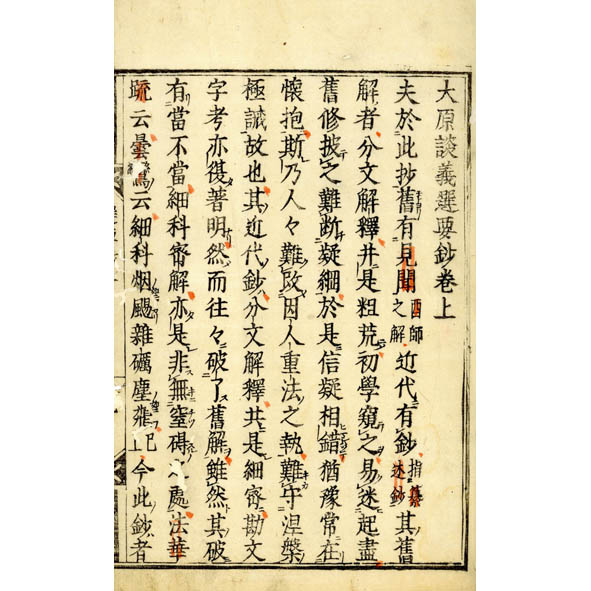 大原談義選要鈔卷上
夫於此抄舊有見聞酉師之解近代有鈔指纂述鈔其舊
解者分文解釋井是粗荒初學窺之易迷起盡
舊修披之難斷疑網於是信疑相錯猶豫常在
懷抱斯乃人々難改因人重法之執難守涅槃
極誠故也其近代鈔分文解釋共是細密勘文
字考亦復著明然而往々破了舊解雖然其破
有當不當細科密解亦是非無窒碍處法華
疏云曇鸞云細科烟颺雜礪塵飛已今此鈔者